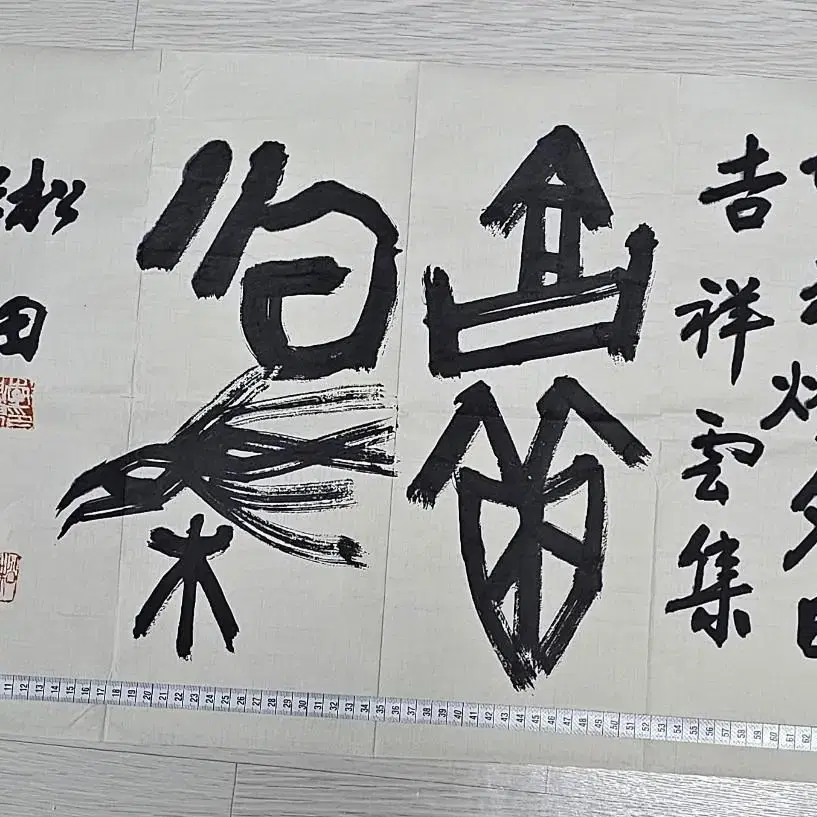 吉祥雲集
吉祥
雲集
松田
11 12 13 14 15 16 17 18 19 20 21 22 23 24 25 26 27 28 29 30 31 32 33 34 35 36 37 38 39 40 41 42 43 44 45 46 47 48 49 50 51 52 53 54 55 56 57 58 59 60 61 62